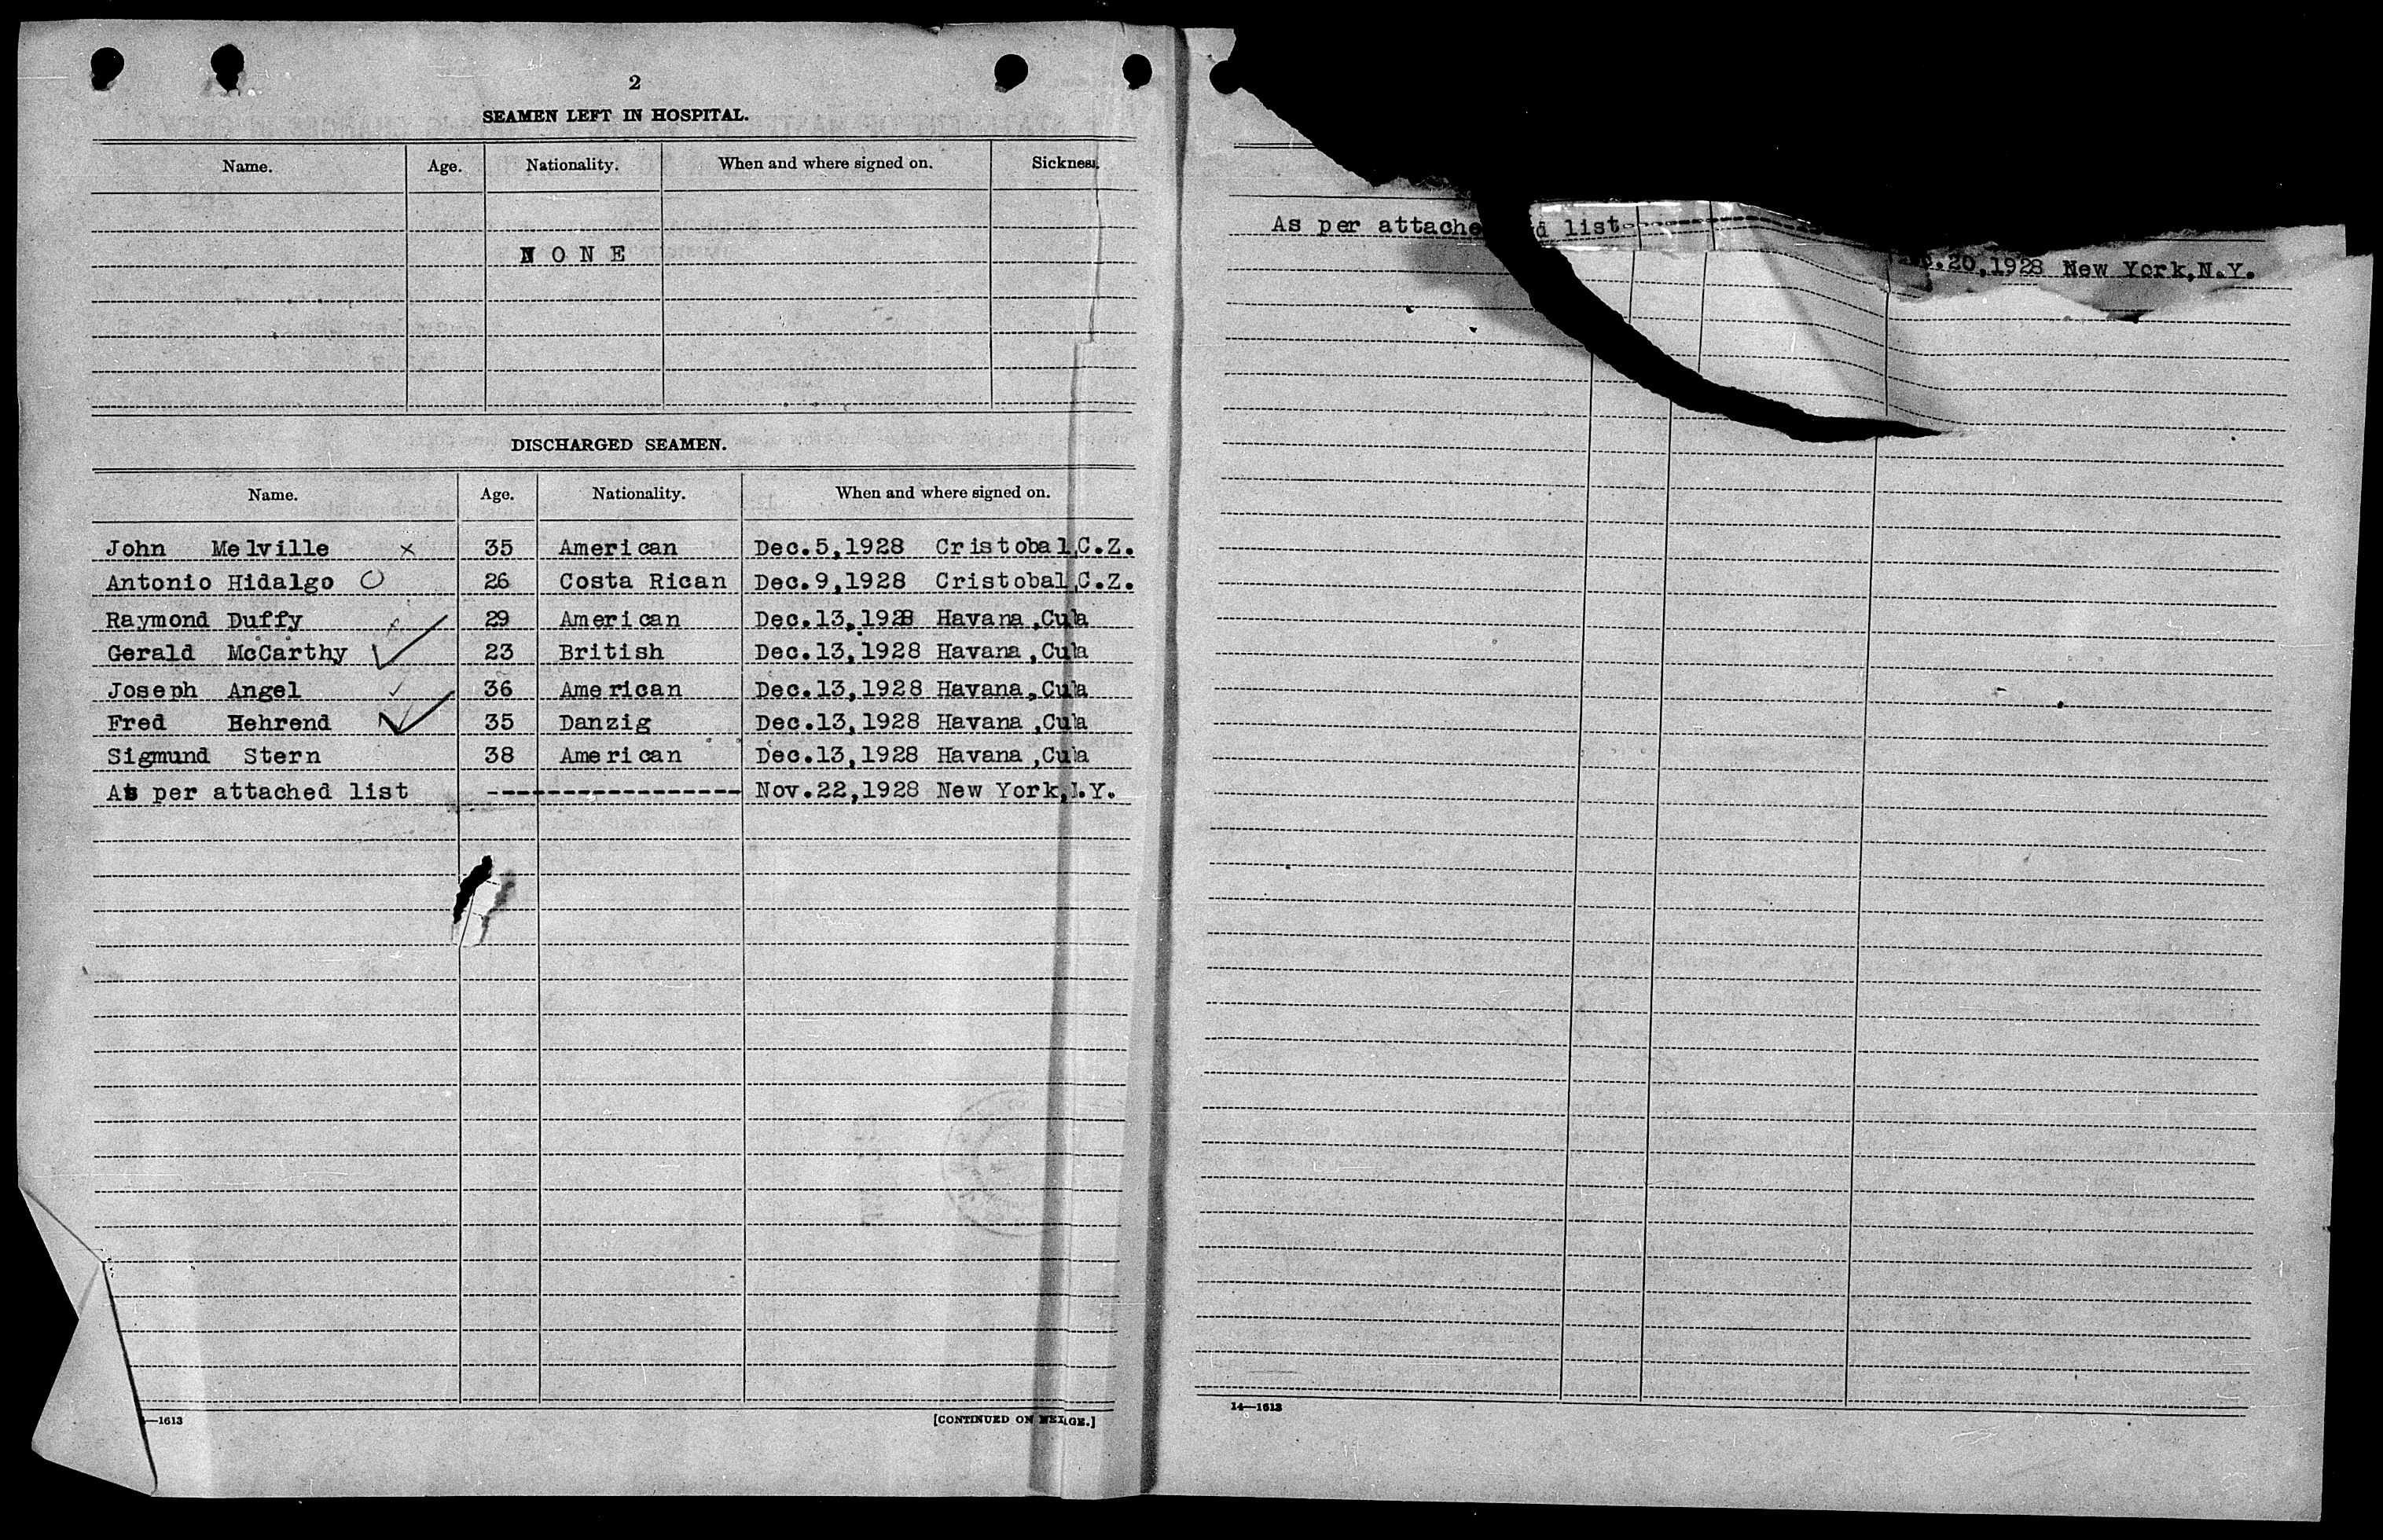 2
SEAMEN LEFT IN HOSPITAL.
Name. Age. Nationality. When and where signed on. Sickness.
NONE
DISCHARGED SEAMEN.
Name. Age. Nationality. When and where signed on.
John Melville x 35 American Dec.5,1928 Cristobal,C.Z.
Antonio Hidalgo O 26 Costa Rican Dec.9,1928 Cristobal,C.Z.
Raymond Duffy x 29 American Dec.13,1928 Havana,Cu a
Gerald McCarthy ✓ 23 British Dec.13,1928 Havana,Cu a
Joseph Angel ✓ 36 American Dec.13,1928 Havana,Cu a
Fred Behrend ✓ 35 Danzig Dec.13,1928 Havana,Cu a
Sigmund Stern 38 American Dec.13,1928 Havana,Cu a
As per attached list ----------------- Nov.22,1928 New York, .Y.
—1613
[CONTINUED ON
As per attached list-----------
.20,1928 New York,N.Y.
14—1613